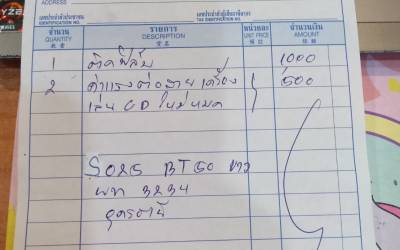 ADDRESS
เลขประจำตัวประชาชน
เลขประจำตัวผู้เสียภาษีอากร
TAX IDENTIFICATION NO.
จำนวน รายการ หน่วยละ จำนวนเงิน
QUANTITY DESCRIPTION UNIT PRICE AMOUNT
1 ติดฟิล์ม 1000
2 ค่าแรงต่อสาย เครื่อง 500
เล่น CD ใหม่หมด
BT50 ขาว
3234
อุดรธานี